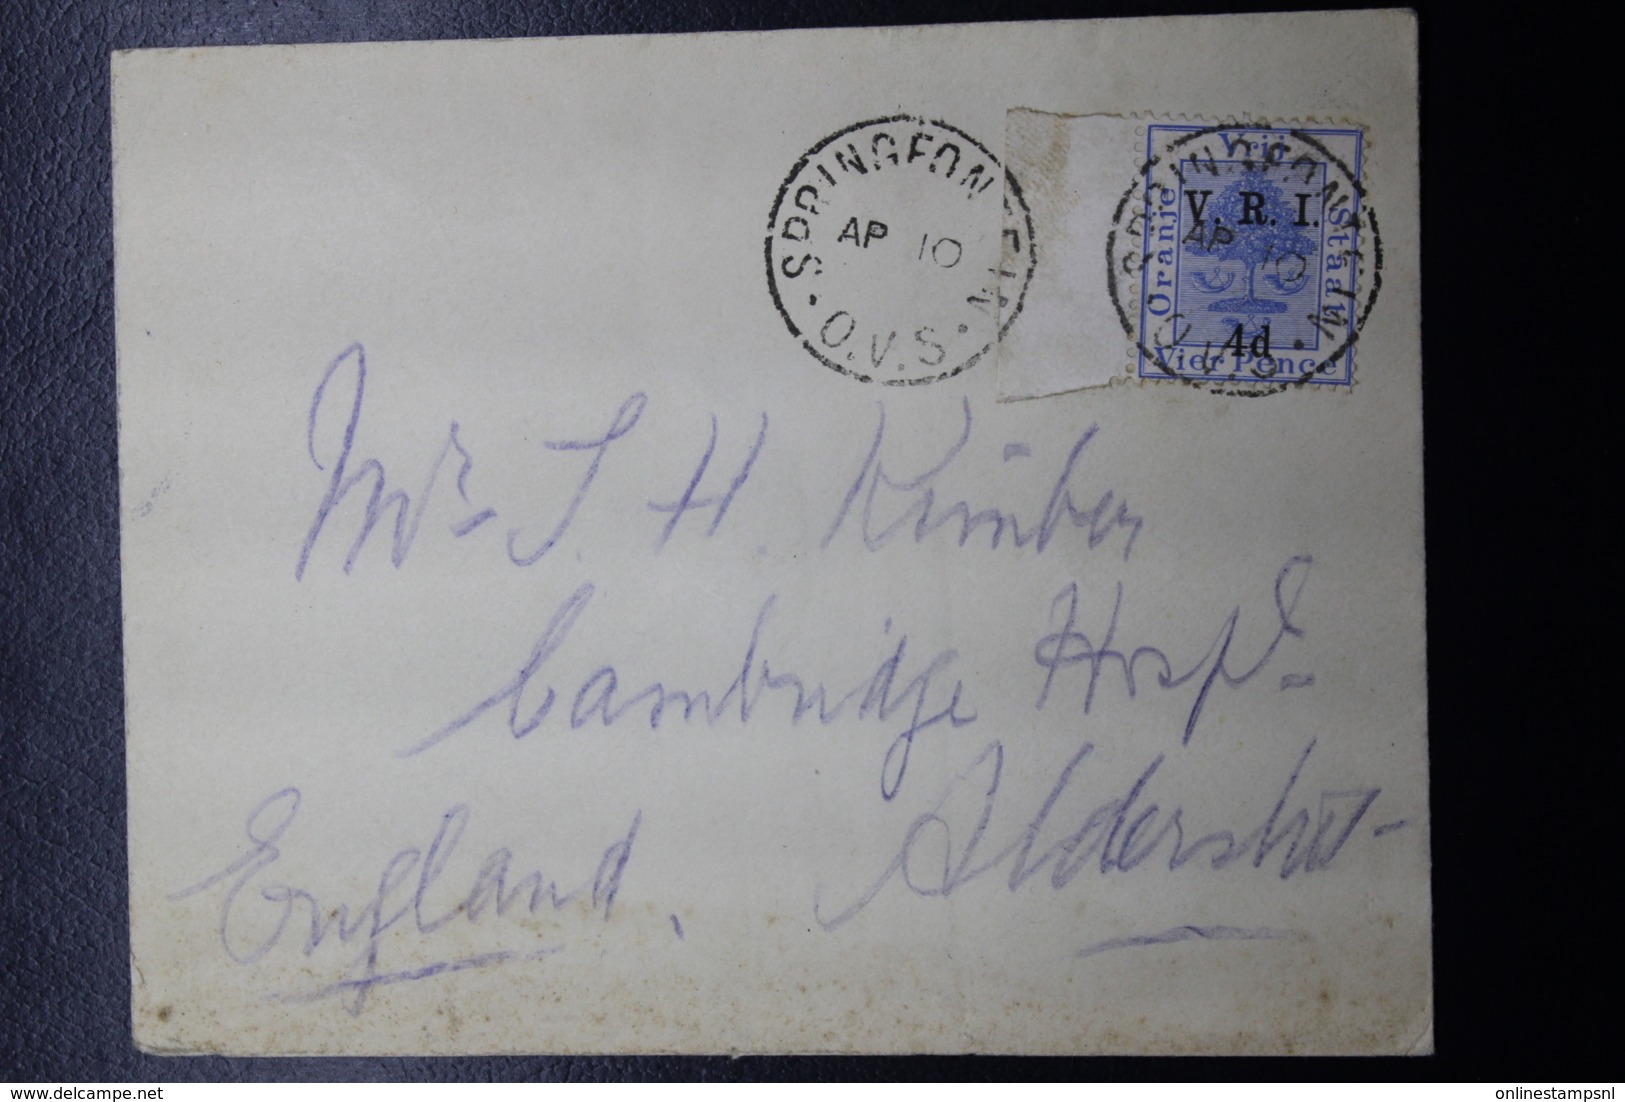 SPRINGFONTEIN
AP 10
O.V.S
Vrij
Oranje
Staat
V. R. I.
4d
Vier Pence
SPRINGFONTEIN
AP 10
O.V.S.
Mr S. H. Kimber
Cambridge Hospl
Aldershot
England.
onlinestampsnl